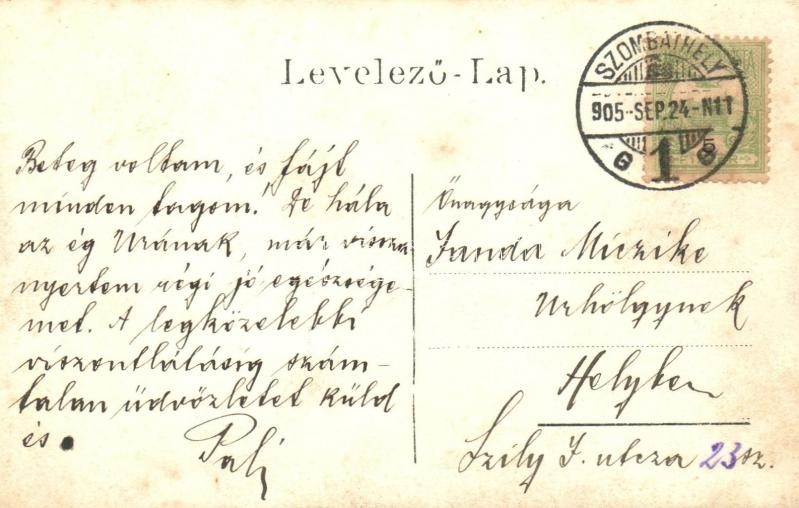 Levelező-Lap.
SZOMBATHELY
905-SEP.24-N11
1
5
Beteg voltam, és fájt
minden tagom! De hála
az ég Urának, már vissza
nyertem régi jó egészsége-
met. A legközelebbi
viszontlátásig szám-
talan üdvözletet küld
és
Pali
Őnagysága
Janda Miczike
Urhölgynek
Helyben
Szily J. utcza 23 sz.